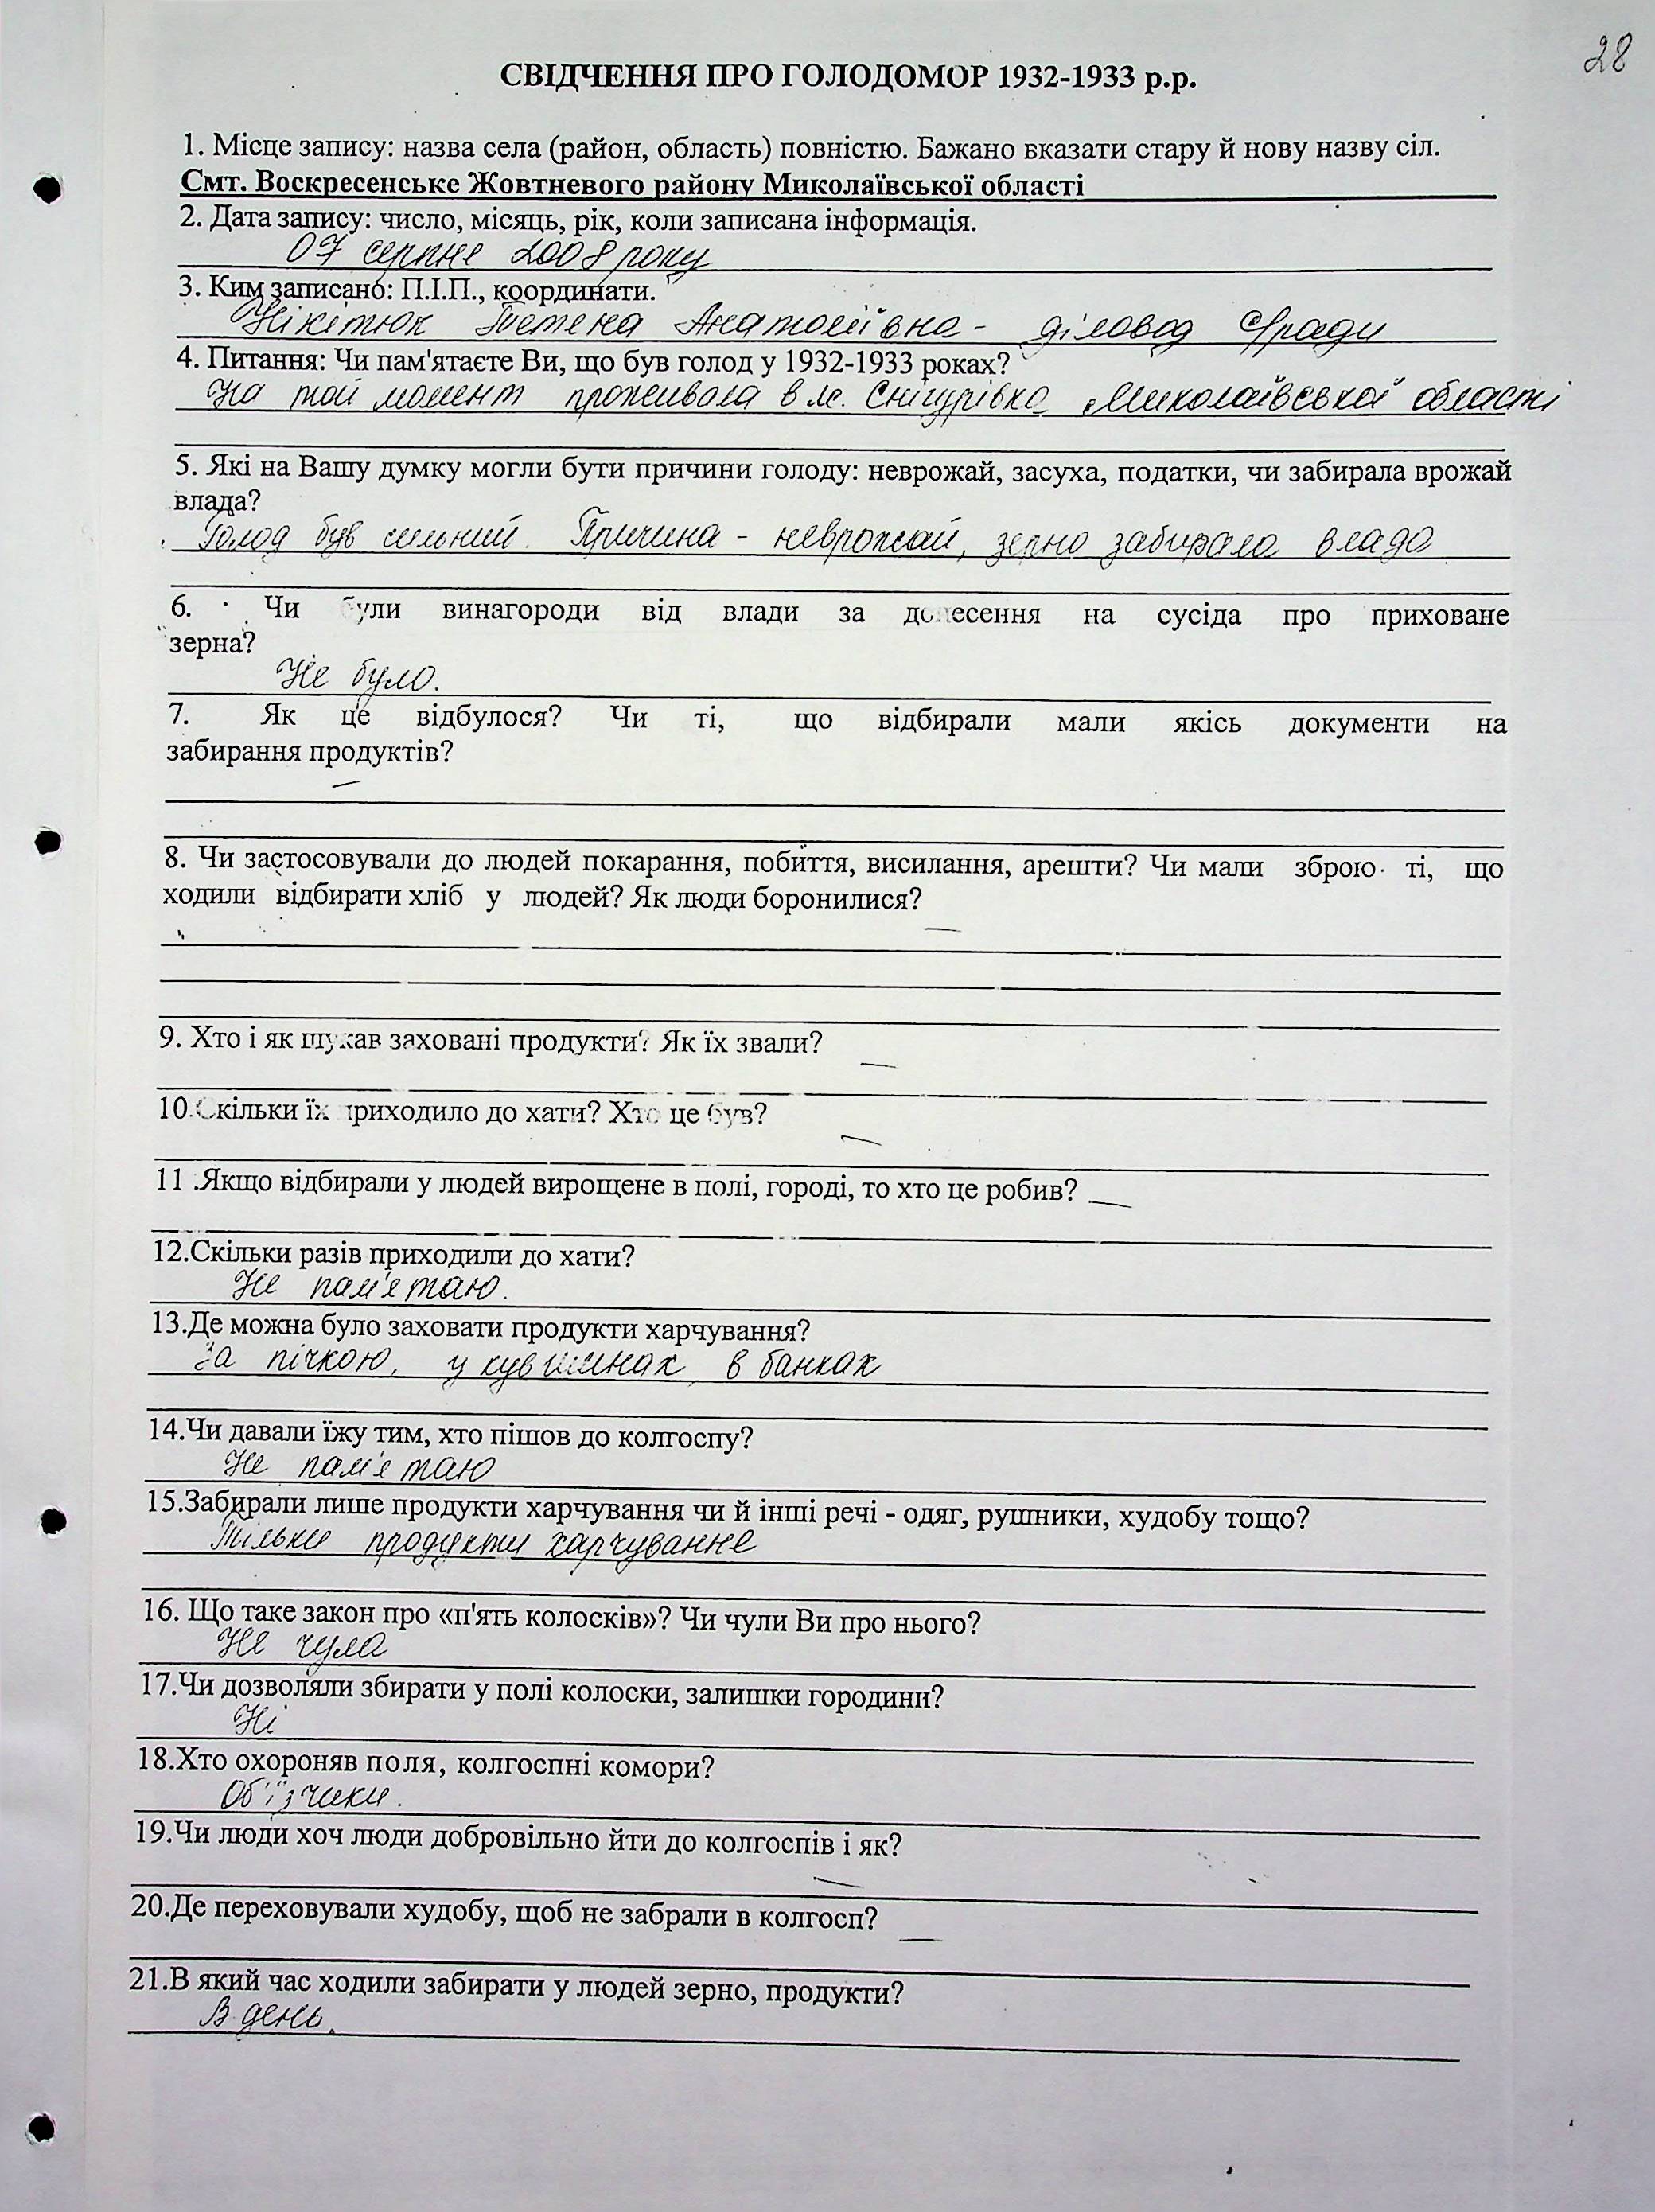 28
СВІДЧЕННЯ ПРО ГОЛОДОМОР 1932-1933 р.р.
1. Місце запису: назва села (район, область) повністю. Бажано вказати стару й нову назву сіл.
Смт. Воскресенське Жовтневого району Миколаївської області
2. Дата запису: число, місяць, рік, коли записана інформація.
07 серпня 2008 року
3. Ким записано: П.І.П., координати.
Нікітюк Тетяна Анатоліївна - діловод с/ради
4. Питання: Чи пам'ятаєте Ви, що був голод у 1932-1933 роках?
На той момент проживала в м. Снігурівка Миколаївської області
5. Які на Вашу думку могли бути причини голоду: неврожай, засуха, податки, чи забирала врожай
влада?
Голод був сильний. Причина - неврожай, зерно забирала влада
6. Чи були винагороди від влади за донесення на сусіда про приховане
зерна?
Не було.
7. Як це відбулося? Чи ті, що відбирали мали якісь документи на
забирання продуктів?
—
8. Чи застосовували до людей покарання, побиття, висилання, арешти? Чи мали зброю ті, що
ходили відбирати хліб у людей? Як люди боронилися?
—
9. Хто і як шукав заховані продукти? Як їх звали?
—
10.Скільки їх приходило до хати? Хто це був?
—
11 .Якщо відбирали у людей вирощене в полі, городі, то хто це робив? —
12.Скільки разів приходили до хати?
Не пам'ятаю.
13.Де можна було заховати продукти харчування?
За пічкою, у кувшинах, в банках
14.Чи давали їжу тим, хто пішов до колгоспу?
Не пам'ятаю
15.Забирали лише продукти харчування чи й інші речі - одяг, рушники, худобу тощо?
Тільки продукти харчування
16. Що таке закон про «п'ять колосків»? Чи чули Ви про нього?
Не чула
17.Чи дозволяли збирати у полі колоски, залишки городини?
Ні
18.Хто охороняв поля, колгоспні комори?
Об'їзчики.
19.Чи люди хоч люди добровільно йти до колгоспів і як?
—
20.Де переховували худобу, щоб не забрали в колгосп?
—
21.В який час ходили забирати у людей зерно, продукти?
В день.